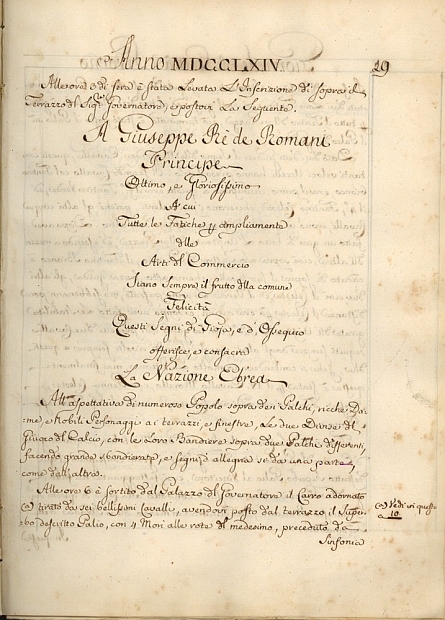 Anno MDCCLXIV.
29
Alle ore 3 di sera è stata Levata L'Inscrizione di sopra il
Terrazzo del Sigr Governatore, e postovi La Seguente.
A Giuseppe Rè de Romani
Principe
Ottimo, e Gloriosissimo
A cui
Tutte le Fatiche p ampliamento
delle
Arti del Commercio
Siano sempre il frutto della comune
Felicità
Questi Segni di Gioja, e d'Ossequio
offerisce, e consacra
La Nazione Ebrea
All'aspettativa di numeroso Popolo sopra de Palchi, ricche Da-
me, e Nobili Personaggi ai terrazzi, e finestre, Le due Danze del
Giuoco del Calcio, con le Loro Bandiere sopra due Palchi differenti,
facendo grande sbandierata, e segni d'allegria sì da una parte
come dall'altra.
Alle ore 6 è sortito dal Palazzo del Governatore il Carro adornato
(a) tirato da sei bellissimi Cavalli, avendovi posto dal terrazzo il Super-
bo descritto Palio, con 4 Mori alle rote del medesimo, preceduto da
Sinfonia
(a) Vedi in questo
a 10.